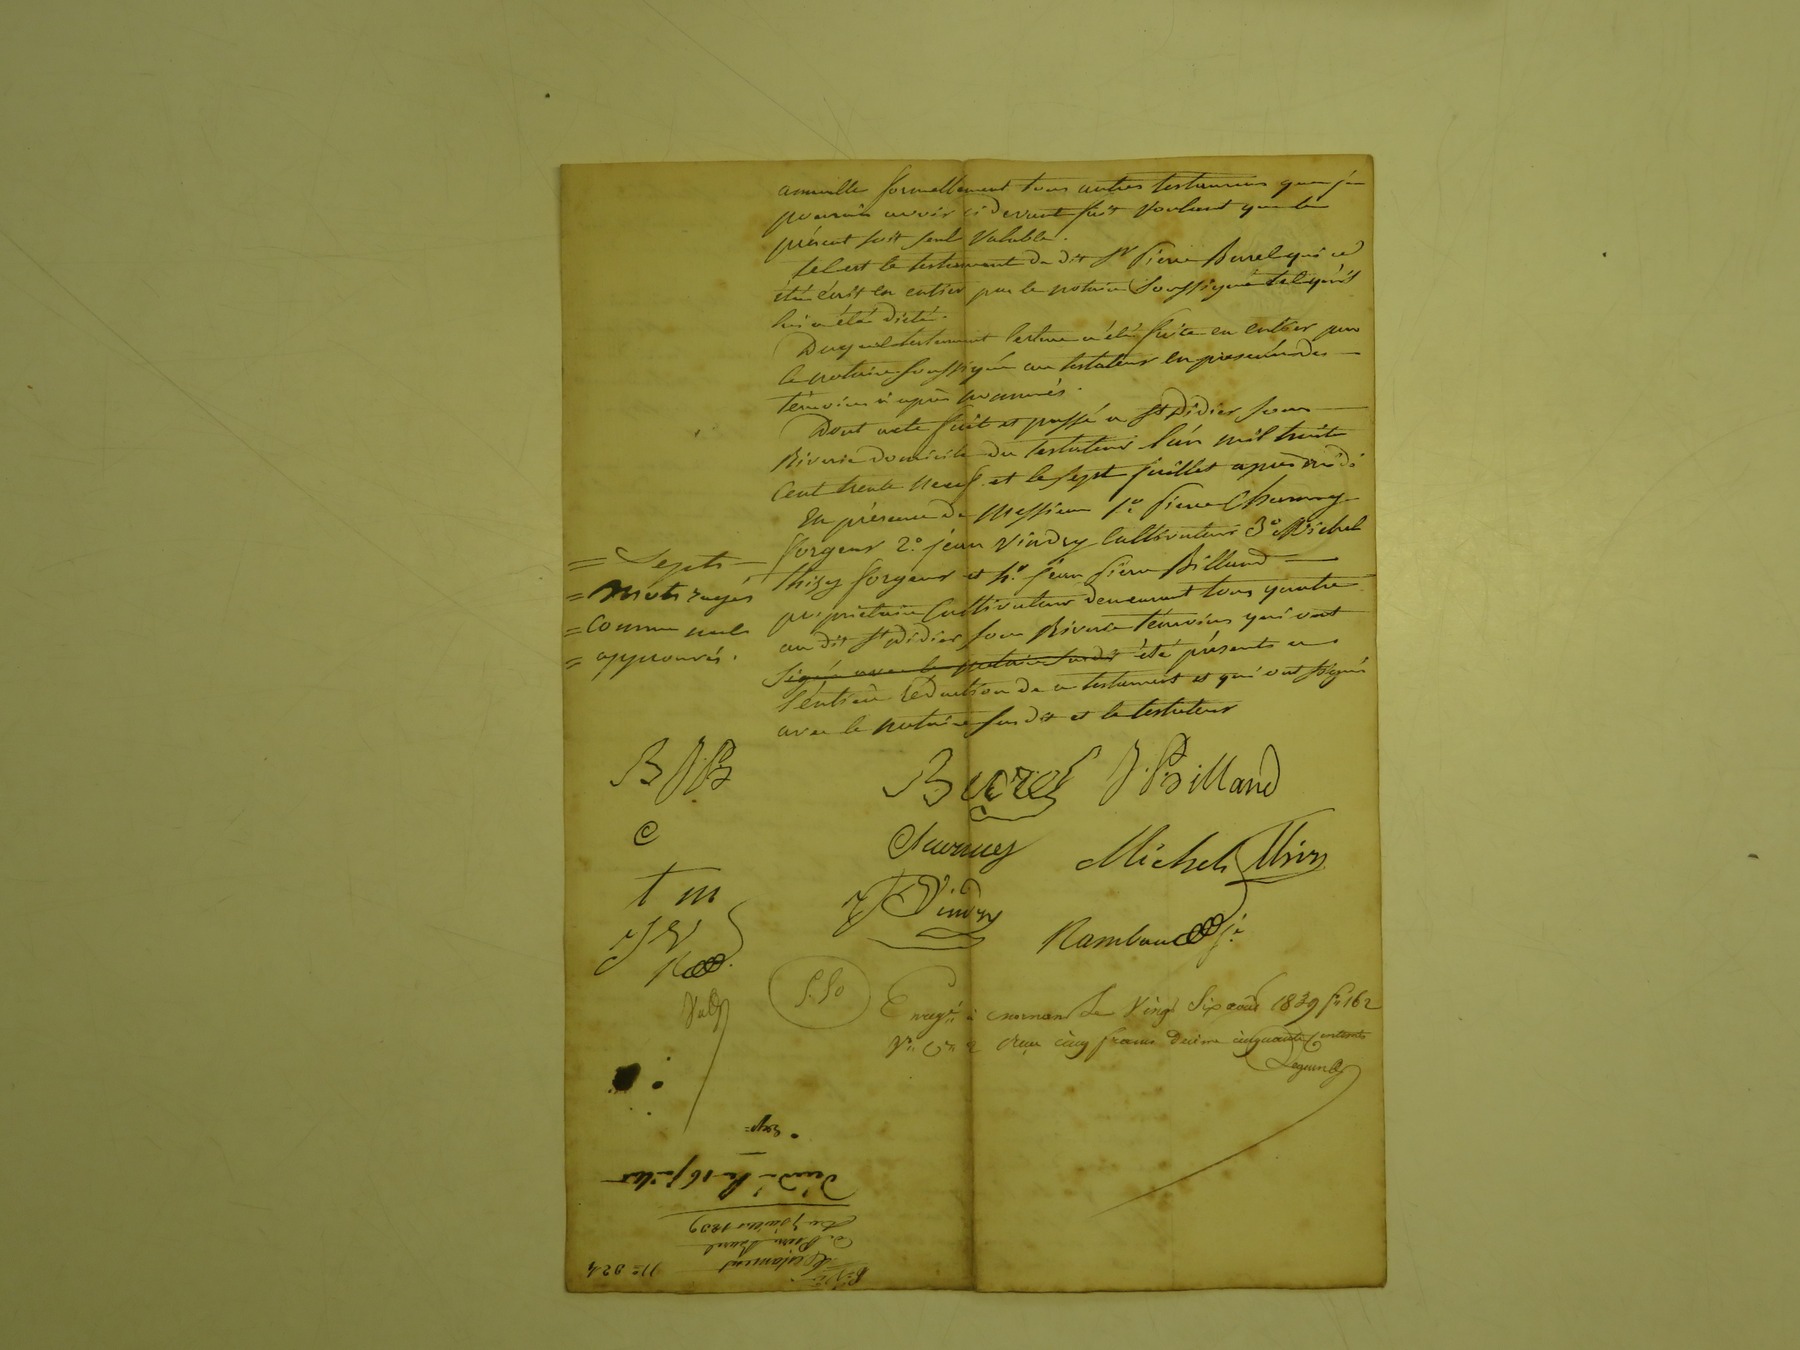 annulle formellement tous autres testamens que je
pourrais avoir ci devant fait voulant que le
présent soit seul valable.
Tel est le testament du dit Sr Pierre Burel qui a
été écrit en entier par le notaire soussigné tel qu'il
lui a été dicté.
Duquel testament lecture a été faite en entier par
le notaire soussigné au testateur en présence des
témoins ci après nommés.
Dont acte fait et passé a St Didier sous
Riverie domicile du testateur l'an mil huit
cent trente neuf et le sept juillet après midi
En présence de Messieurs 1º Pierre Charmy
forgeur 2º jean Vindry cultivateur 3º Michel
thisy forgeur et 4º jean Pierre Billand
propriétaire cultivateur demeurant tous quatre
au dit St Didier sous Riverie témoins qui ont
signé avec le notaire susdit été présents a
l'entière rédaction de ce testament et qui ont signé
avec le notaire susdit et le testateur
= Septs
= mots rayés
= comme nuls
= approuvés.
B JPB
Burel JPBilland
C
Charmy Michel
t m
J Vindry
J V
Rambaud
R
5.50
Enregré à mornant le Vingt six août 1839 fº 162
Vº Cse 2 reçu cinq francs décime cinquante centimes
Exp=
Décédé le 16 juillet
du 7 Juillet 1839
de Pierre Burel
Testament
Nº 824